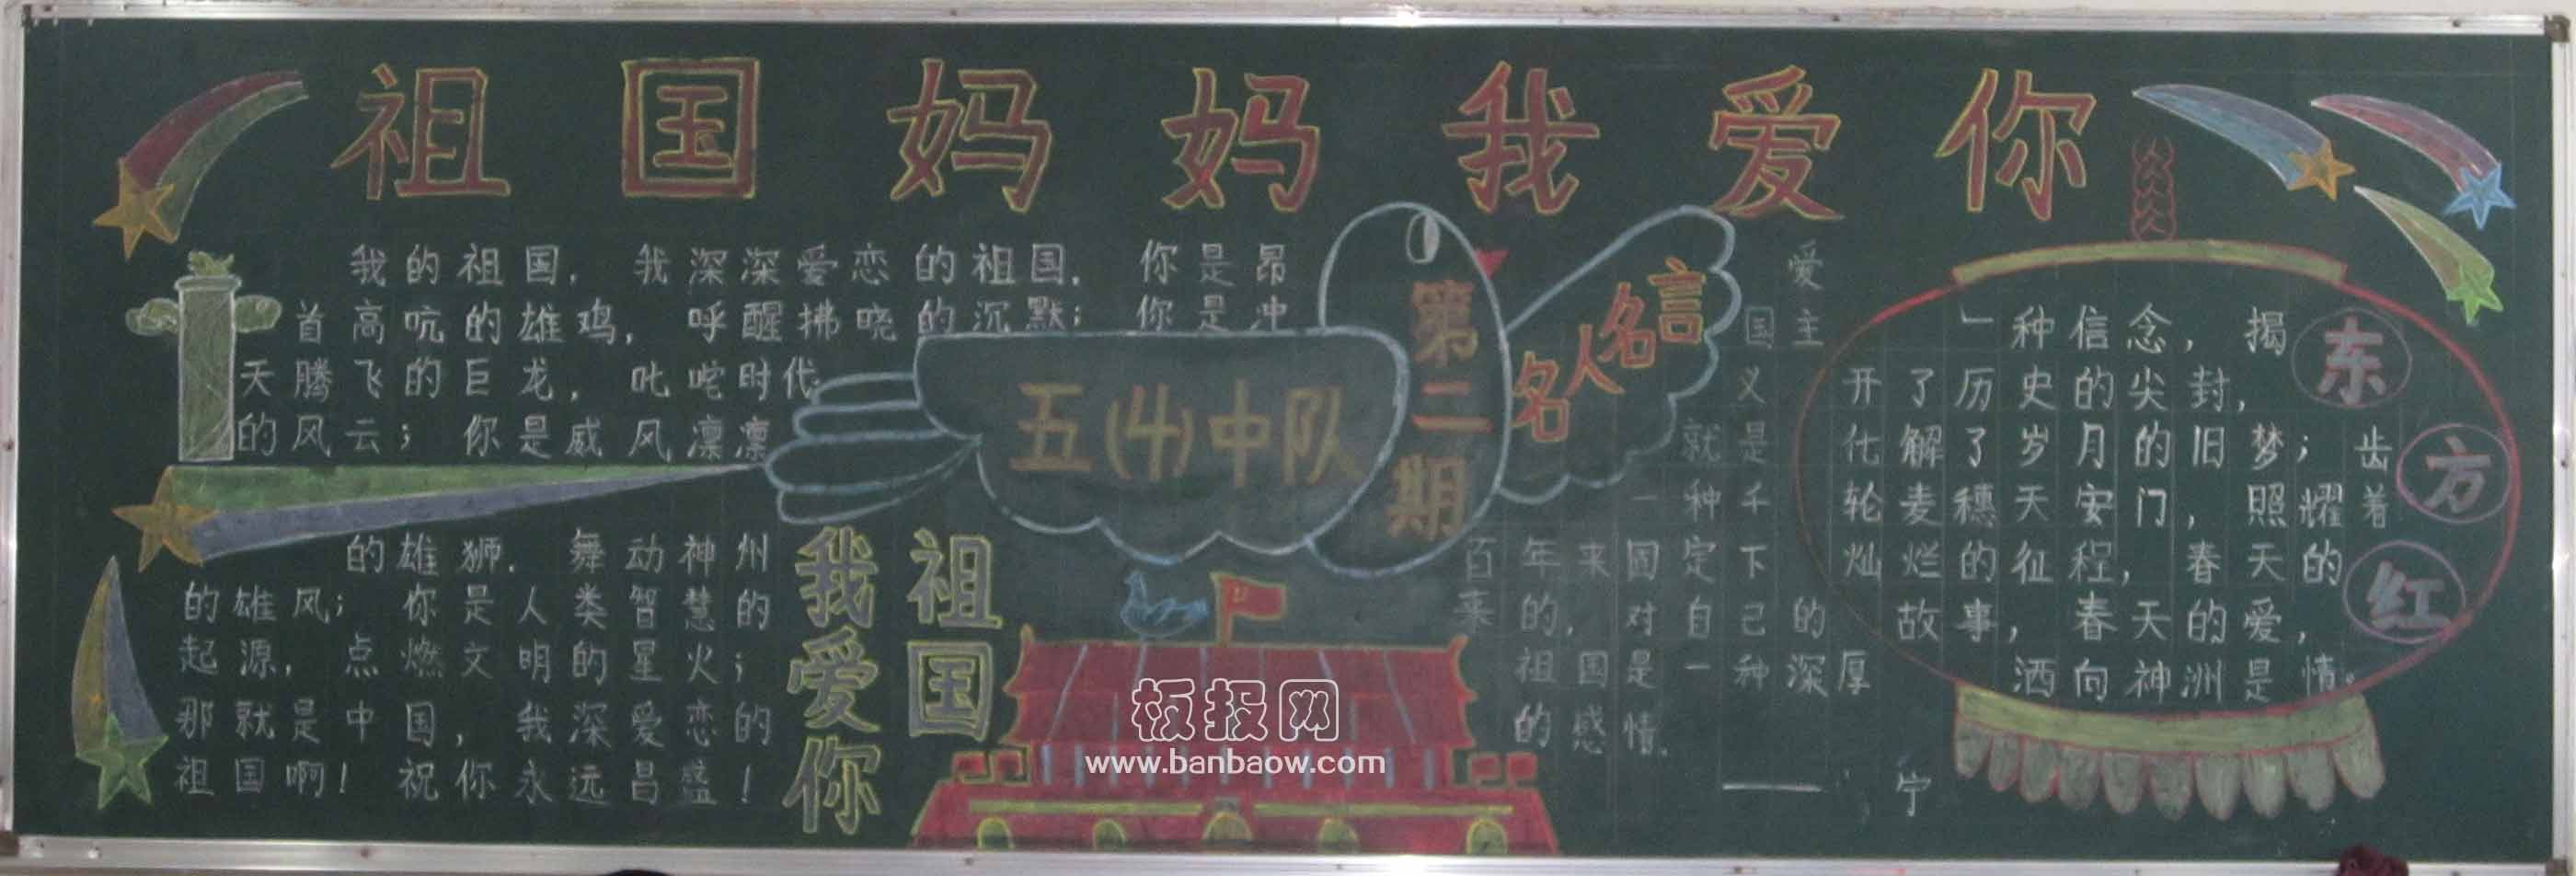 祖国妈妈我爱你
我的祖国，我深深爱恋的祖国，你是昂
首高吭的雄鸡，呼醒拂晓的沉默；你是冲
天腾飞的巨龙，叱咤时代
的风云；你是威风凛凛
的雄狮，舞动神州
的雄风；你是人类智慧的
起源，点燃文明的星火；
那就是中国，我深爱恋的
祖国啊！祝你永远昌盛！
祖国
我爱你
五(4)中队
第二期
名人名言
爱
国主
义
就是
一种千
百年来国定下
的，对自己的
祖国是一种深厚
的感情。
——宁
东方红
一种信念，揭
开了历史的尖封，
化解了岁月的旧梦；齿
轮麦穗天安门，照耀着
灿烂的征程，春天的
故事，春天的爱，
洒向神洲是情。
板报网
www.banbaow.com